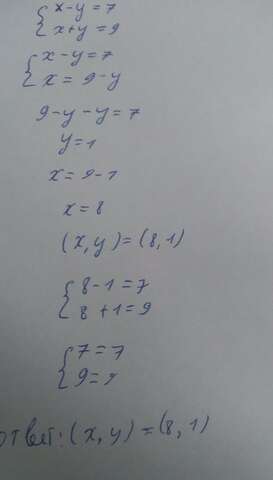 { x-y=7
{ x+y=9
{ x-y=7
{ x=9-y
9-y-y=7
y=1
x=9-1
x=8
(x,y)=(8,1)
{ 8-1=7
{ 8+1=9
{ 7=7
{ 9=9
ответ: (x,y)=(8,1)